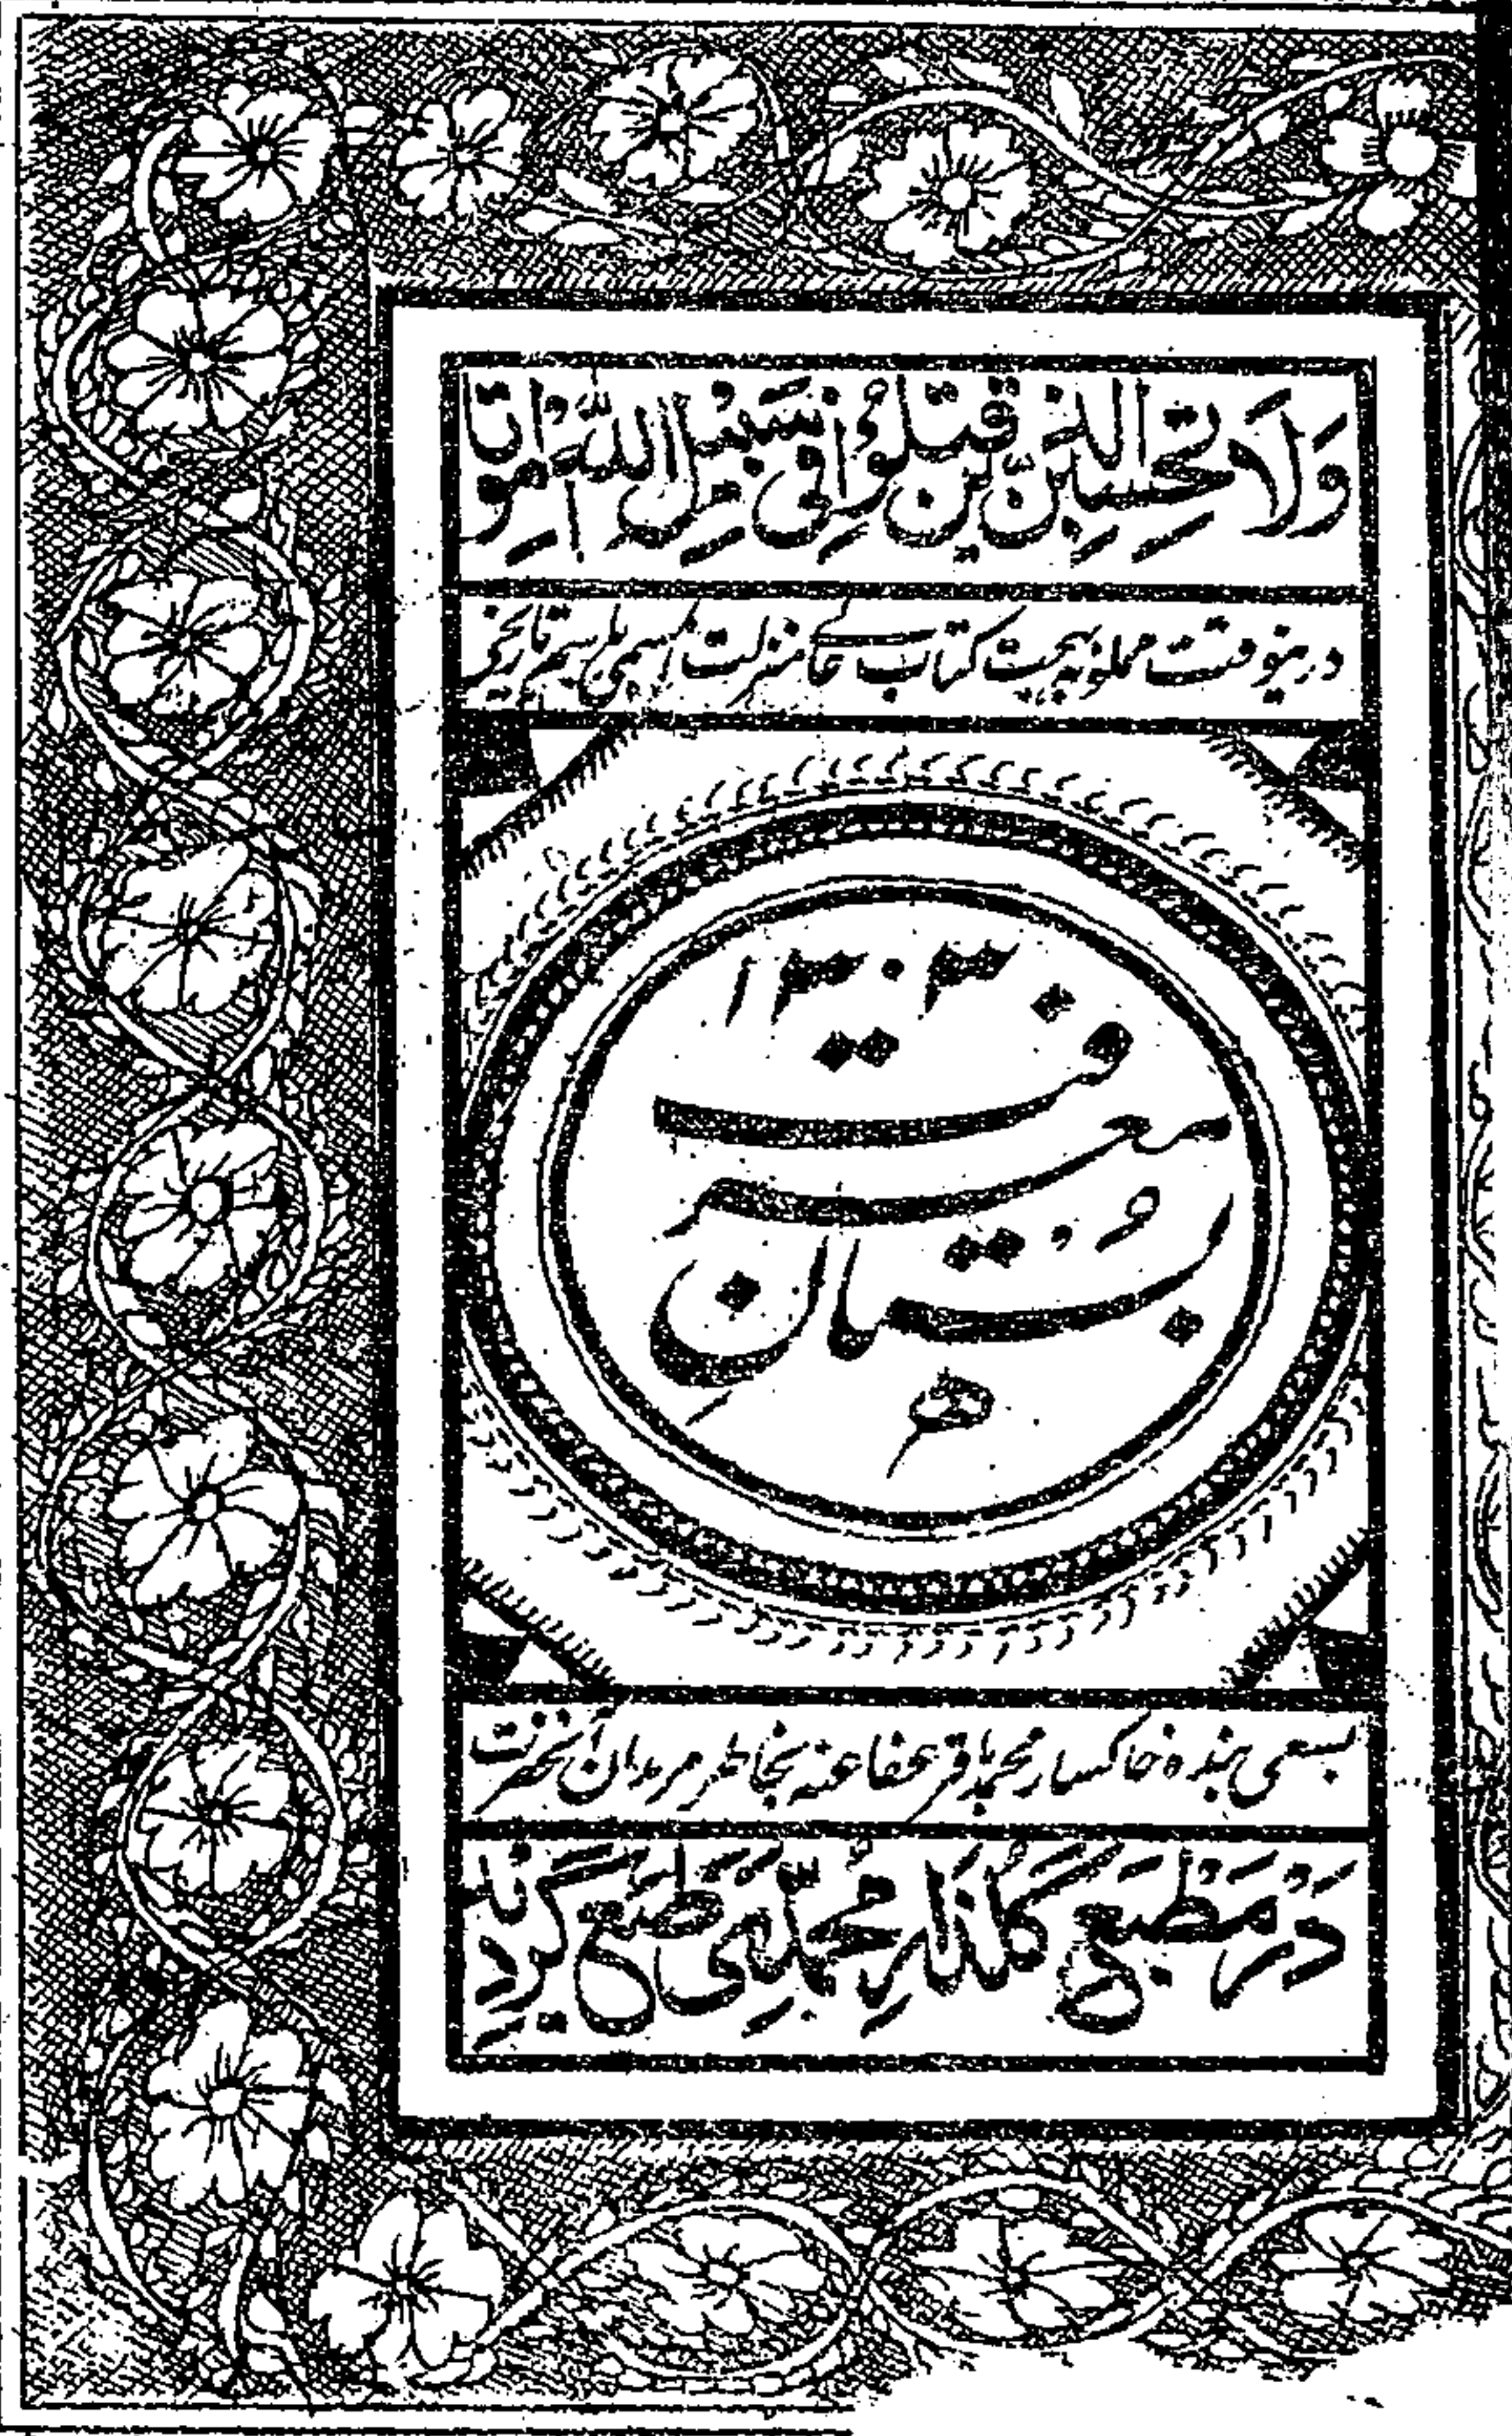 وَلَا تَحْسَبَنَّ الَّذِيْنَ قُتِلُوْا فِيْ سَبِيْلِ اللّٰهِ اَمْوَاتًا
درینوقت مملو بہجت کتاب کرامت اسمی تاریخی
۱۳۰۳
معرفت
بوستان
بسعی بندہ خاکسار محمد باقر عفا عنہ بخاطر مریدان آنحضرت
دَرْ مَطْبَعِ گُلْزَارِ مُحَمَّدِیْ طَبْع گَرْدِیْد